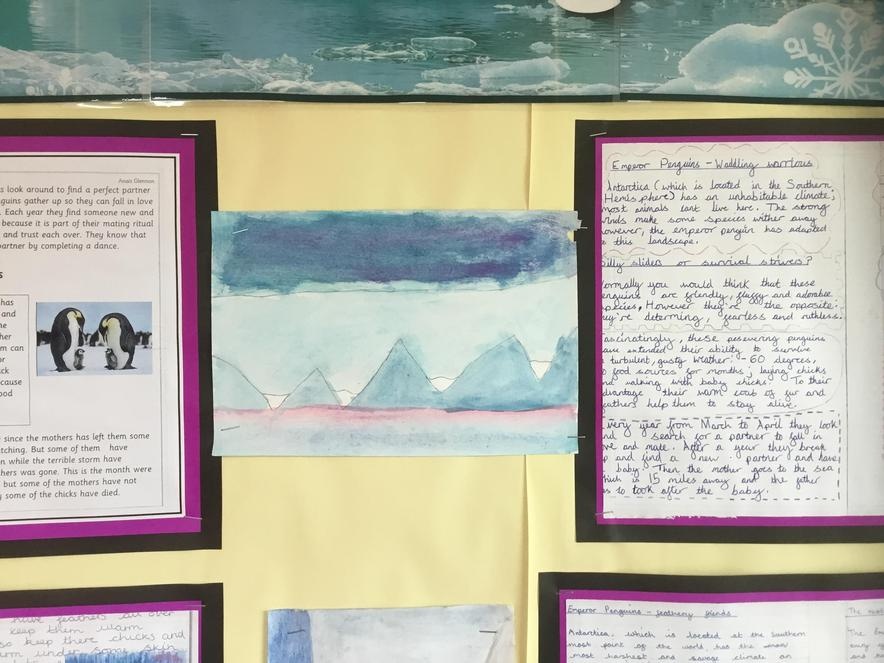 Anais Glennon
s look around to find a perfect partner
guins gather up so they can fall in love
. Each year they find someone new and
because it is part of their mating ritual
and trust each over. They know that
partner by completing a dance.
s
has
and
ne
her
m can
or
ck
cause
ood
e since the mothers has left them some
tching. But some of them have
n while the terrible storm have
thers was gone. This is the month were
, but some of the mothers have not
y some of the chicks have died.
have feathers all over
keep them warm
so keep there chicks and
rm under some skin
Emperor Penguins - Waddling warriors
Antarctica (which is located in the Southern
Hemisphere) has an unhabitable climate;
most animals cant live here. The strong
inds make some species wither away
owever, the emperor penguin has adapted
o this landscape.
illy sliders or survival strivers?
ormally you would think that these
enguins are friendly, fluffy and adorable
species. However they're the opposite:
ey're determing, fearless and ruthless.
ascinatingly, these persevering penguins
ave extended their ability to survive
turbulent, gusty weather: -60 degrees,
o food sources for months; laying chicks
nd walking with baby chicks. To their
dvantage their warm coat of fur and
eathers help them to stay alive.
very year from March to April they look
nd search for a partner to fall in
ve and mate. After a year they break
p and find a new partner and have
baby. Then the mother goes to the sea
hich is 15 miles away and the father
as to took after the baby.
Emperor Penguins - feathery friends
Antarctica, which is located at the Southern
most point of the world, has the
most harshest and savage climate on
The most
The Em
every
and